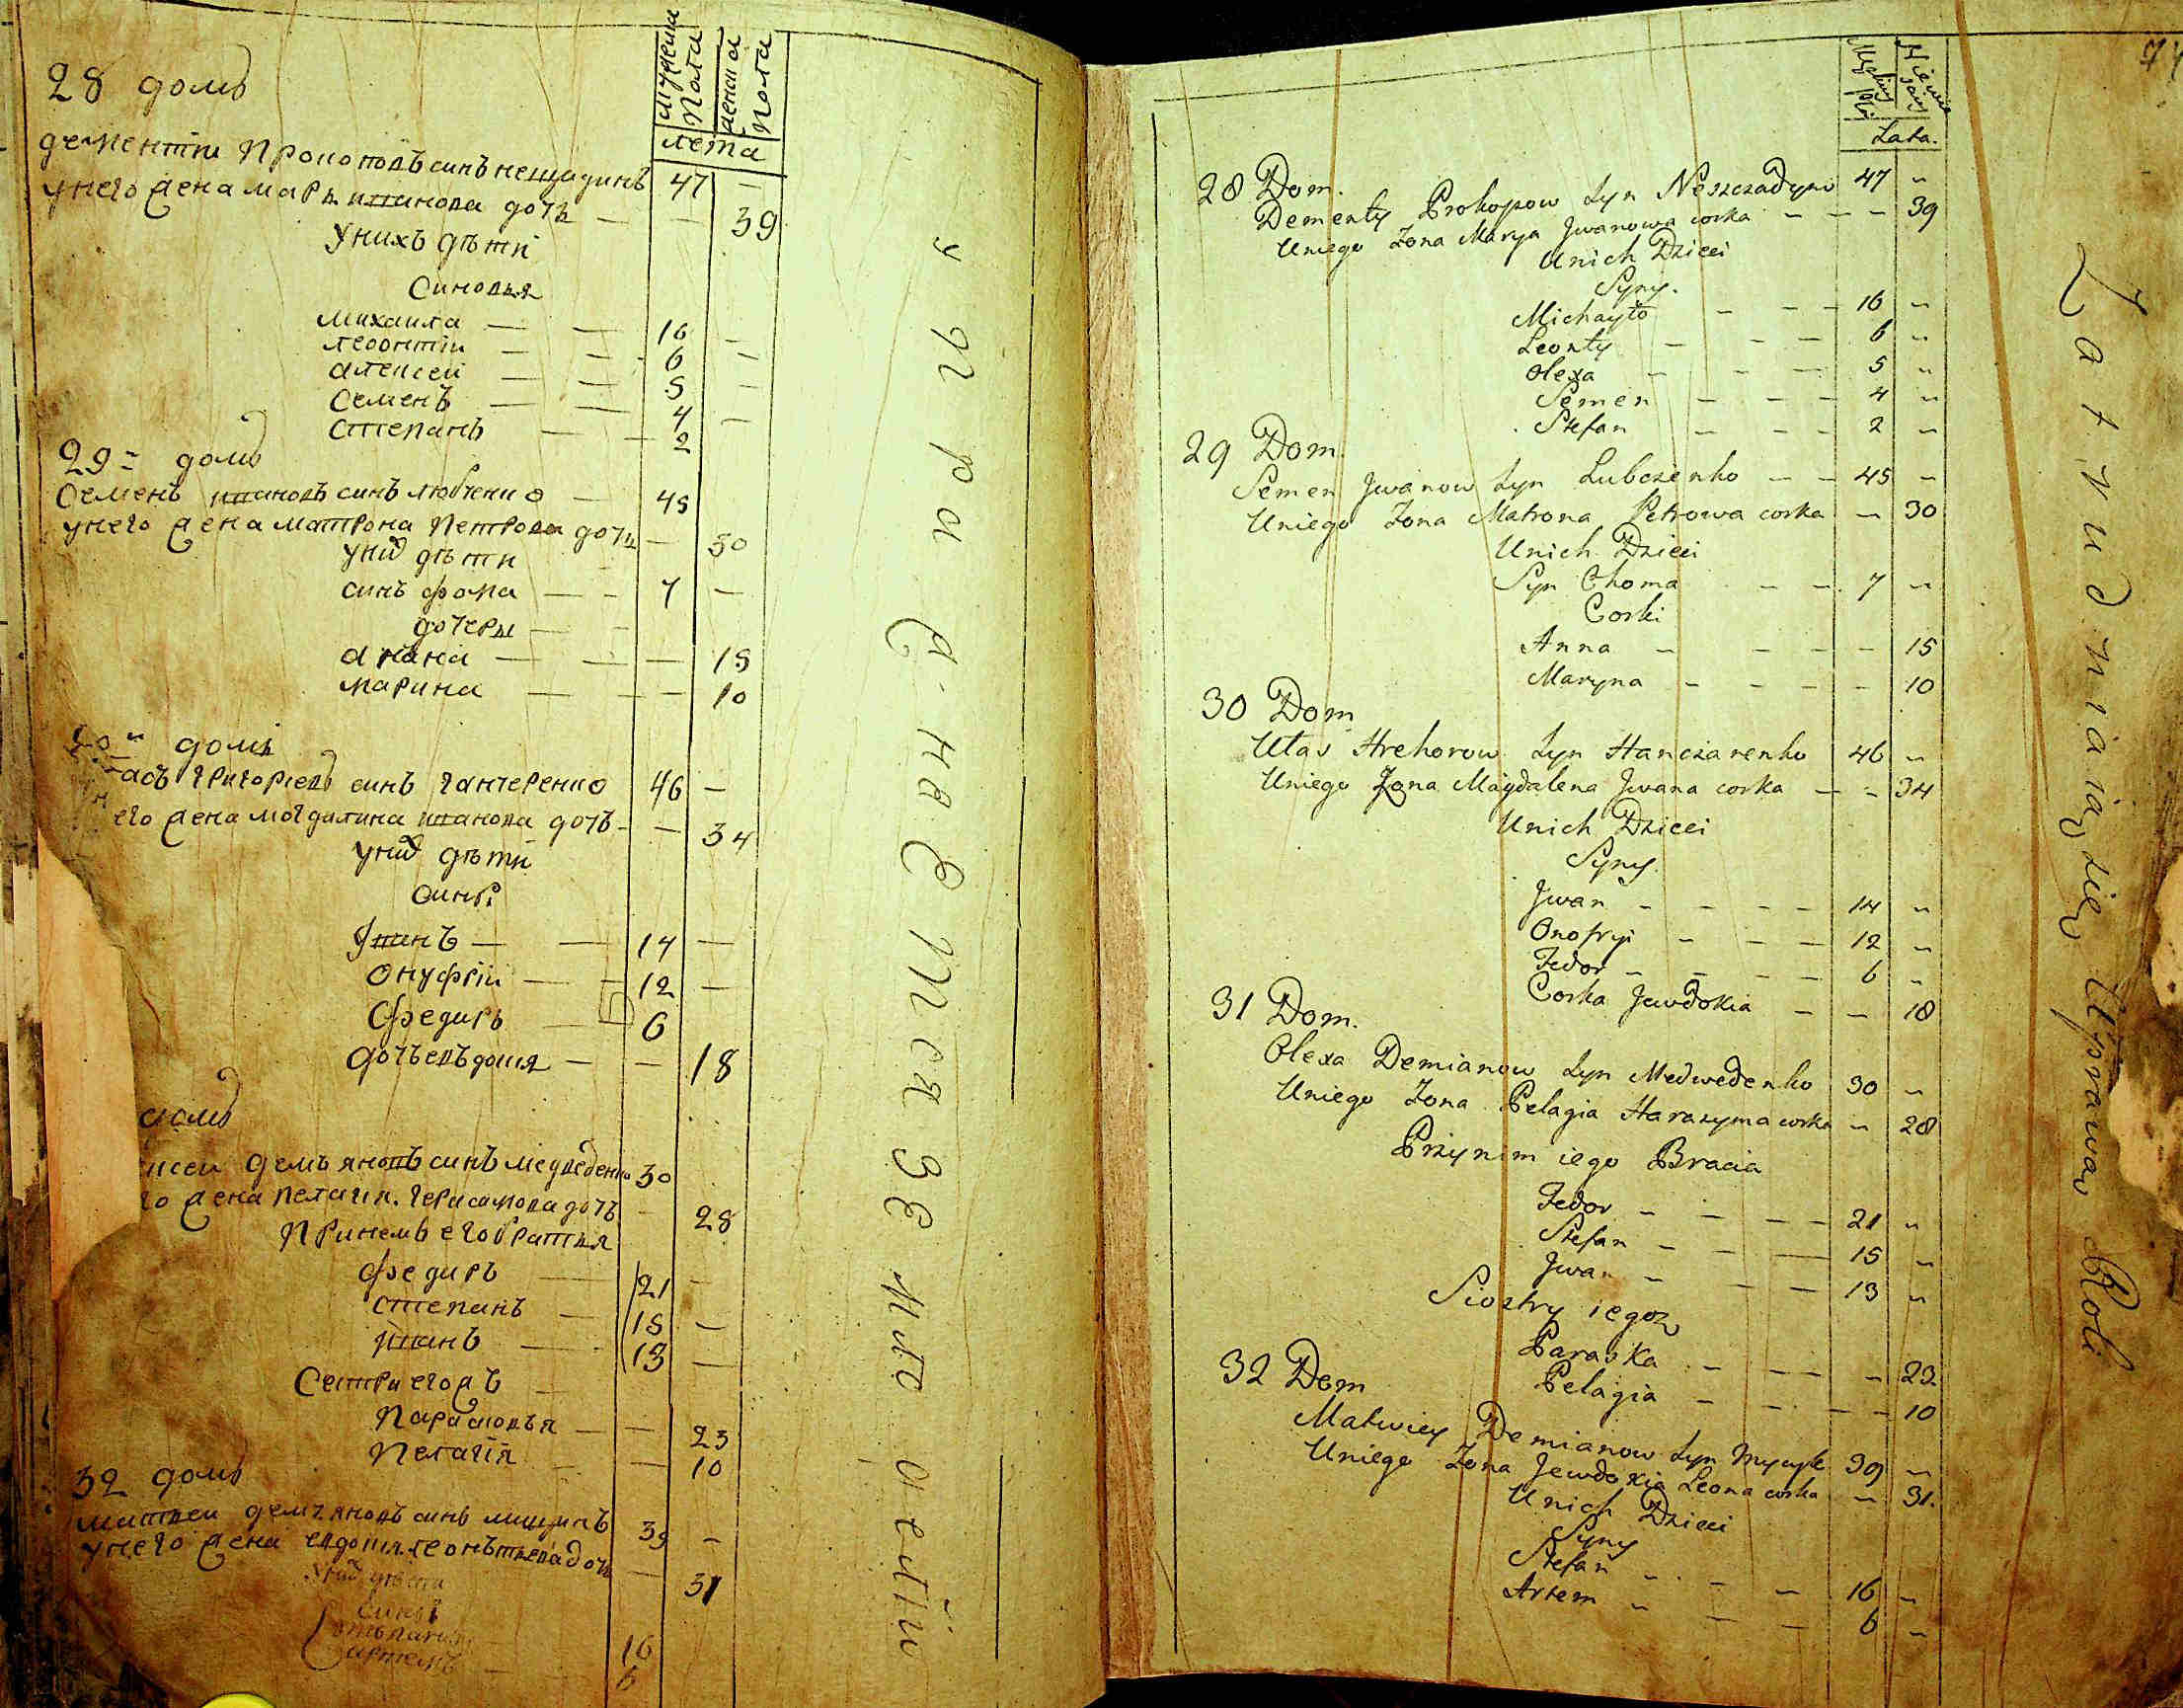 мужеска пола
женска пола
лета
28 домъ
дементіи Прокоповъ синъ нещадинъ 47 —
унего жена марья иванова дочь — — 39
унихъ дѣти
Синовья
михаила — — 16 —
леонтіи — — 6 —
алексеи — — 5 —
Семенъ — — 4 —
степанъ — — 2
29 домъ
Семенъ ивановъ синъ любченко — 45
унего жена матрона петрова дочь — 30
уних дѣти
синъ фома — — 7 —
дочеры —
анна — — — 15
марина — — — 10
30 домъ
григориевъ синъ ганчеренко 46 —
его жена могдалина иванова дочъ — — 34
уних дѣти
сины
Иванъ — — 14 —
онуфріи — — 12 —
федиръ — 6
дочъ евъдокия — — 18
домъ
демъяновъ синъ медведенко 30
жена пелагия герасимова дочъ — 28
Принемъ его братья
федиръ — 21 —
степанъ — 15 —
иванъ — 13 —
Сестри егожъ —
парасковъя — — 23
пелагія — — 10
32 домъ
матвеи демъяновъ синъ мицикъ 39 —
унего жена евдокия леонътьева дочъ — 31
уних дѣти
сины
степанъ — 16
артемъ — 6
упражнѣется земледелиемъ
Męskiey płci
Lata.
28 Dom.
Dementy Prokopow Syn Neszczadyn 47 „
Uniego Zona Marya Jwanowa corka — — — 39
Unich Dzieci
Syny.
Michayło — — — 16 „
Leonty — — — 6 „
Olexa — — — 5 „
Semen — — — 4 „
Stefan — — — 2 „
29 Dom
Semen Jwanow Syn Lubczenko — — 45 „
Uniego Zona Matrona Petrowa corka — 30
Unich Dzieci
Syn Choma — — 7 „
Corki
Anna — — — — 15
Maryna — — — — — 10
30 Dom
Ułas Hrehorow Syn Hanczarenko 46 „
Uniego Zona Magdalena Jwana corka — — 34
Unich Dzieci
Syny.
Jwan — — — — 14 „
Onofryi — — — 12 „
Fedor — — — — 6 „
Corka Jewdokia — — 18
31 Dom.
Olexa Demianow Syn Medwedenko 30 „
Uniego Zona Pelagia Harasyma corka — 28
Przynim iego Bracia
Fedor — — — — 21 „
Stefan — — — 15 „
Jwan — — — 13 „
Siostry iegoz
Paraska — — — — 23
Pelagia — — — — 10
32 Dom
Matwiey Demianow Syn Mycyk 39 „
Uniego Zona Jewdokia Leona corka — 31.
Unich Dzieci
Syny
Stefan — — — 16 „
Artem — — — 6 „
Zatrudniaią się Uprawą Roli